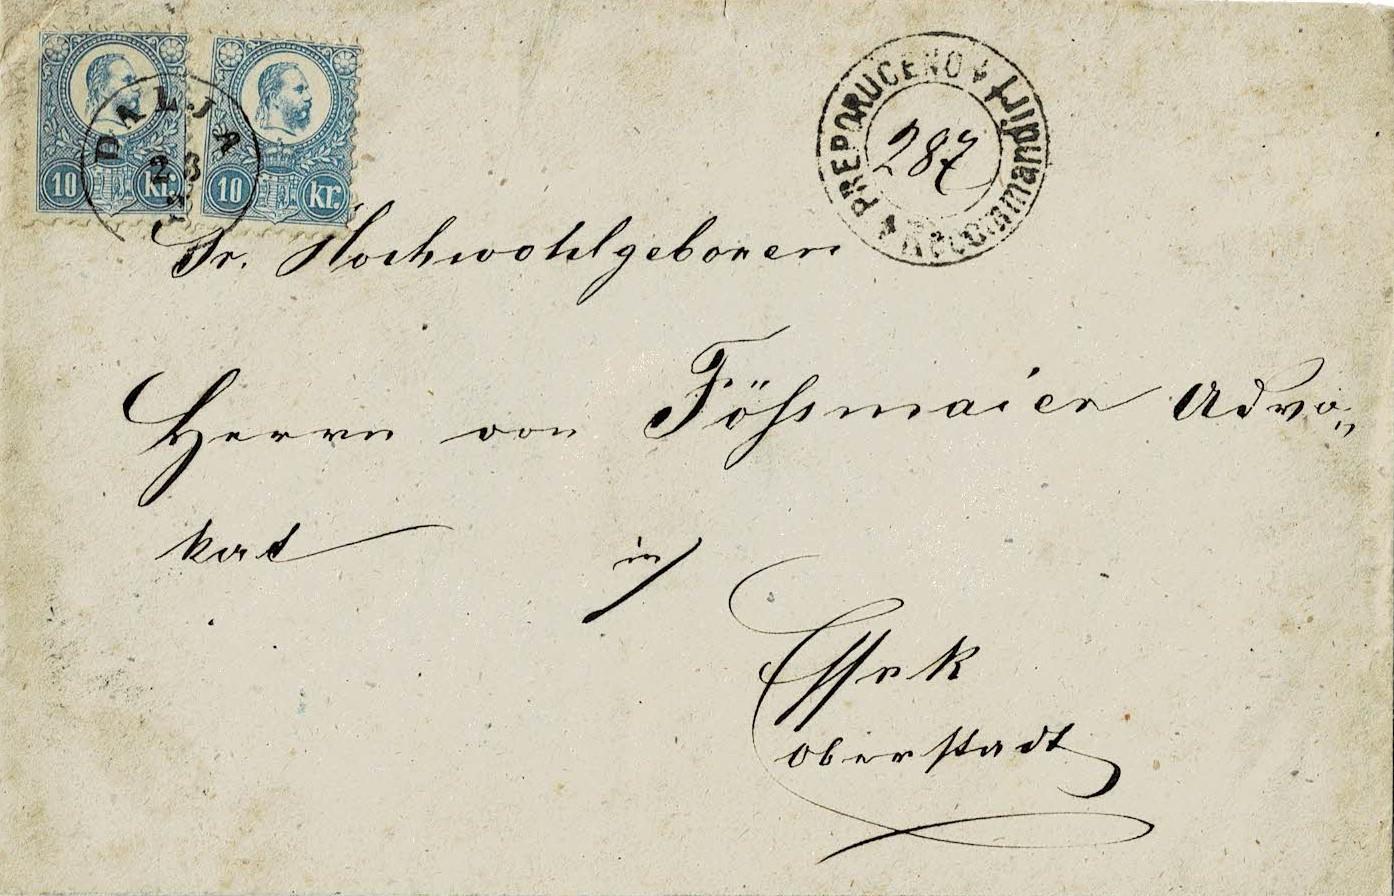 10 kr.
10 kr.
DALJA
23
PREPORUČENO
Recommandirt
287
Sr. Hochwohlgeboren
Herrn von Fößmaier Advo„
kat in
Essek
Oberstadt